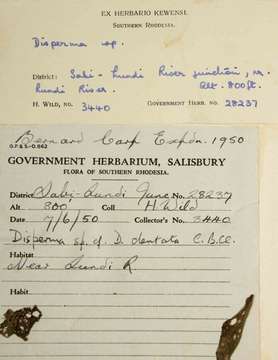 EX HERBARIO KEWENSI.
SOUTHERN RHODESIA.
Disperma sp.
District: Sabi - Lundi River junction, nr.
Lundi River. Alt. 800ft.
H. WILD, NO. 3440 GOVERNMENT HERB. NO. 28237
Bernard Carp Expdn. 1950
G.P.& S.-O.862
GOVERNMENT HERBARIUM, SALISBURY
FLORA OF SOUTHERN RHODESIA.
District Sabi-Lundi Junc No. 28237
Alt 800' Coll H. Wild
Date 7/6/50 Collector's No. 3440
Disperma sp. cf. D. dentata C.B.Cl.
Habitat
Near Lundi R
Habit